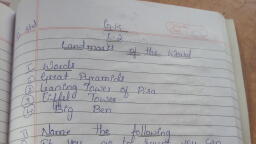 G.K
L-2
Landmark of the World
I Words
① Great Pyramids
② Leaning Tower of Pisa
③ Eiffel Tower
④ Big Ben
II Name the following